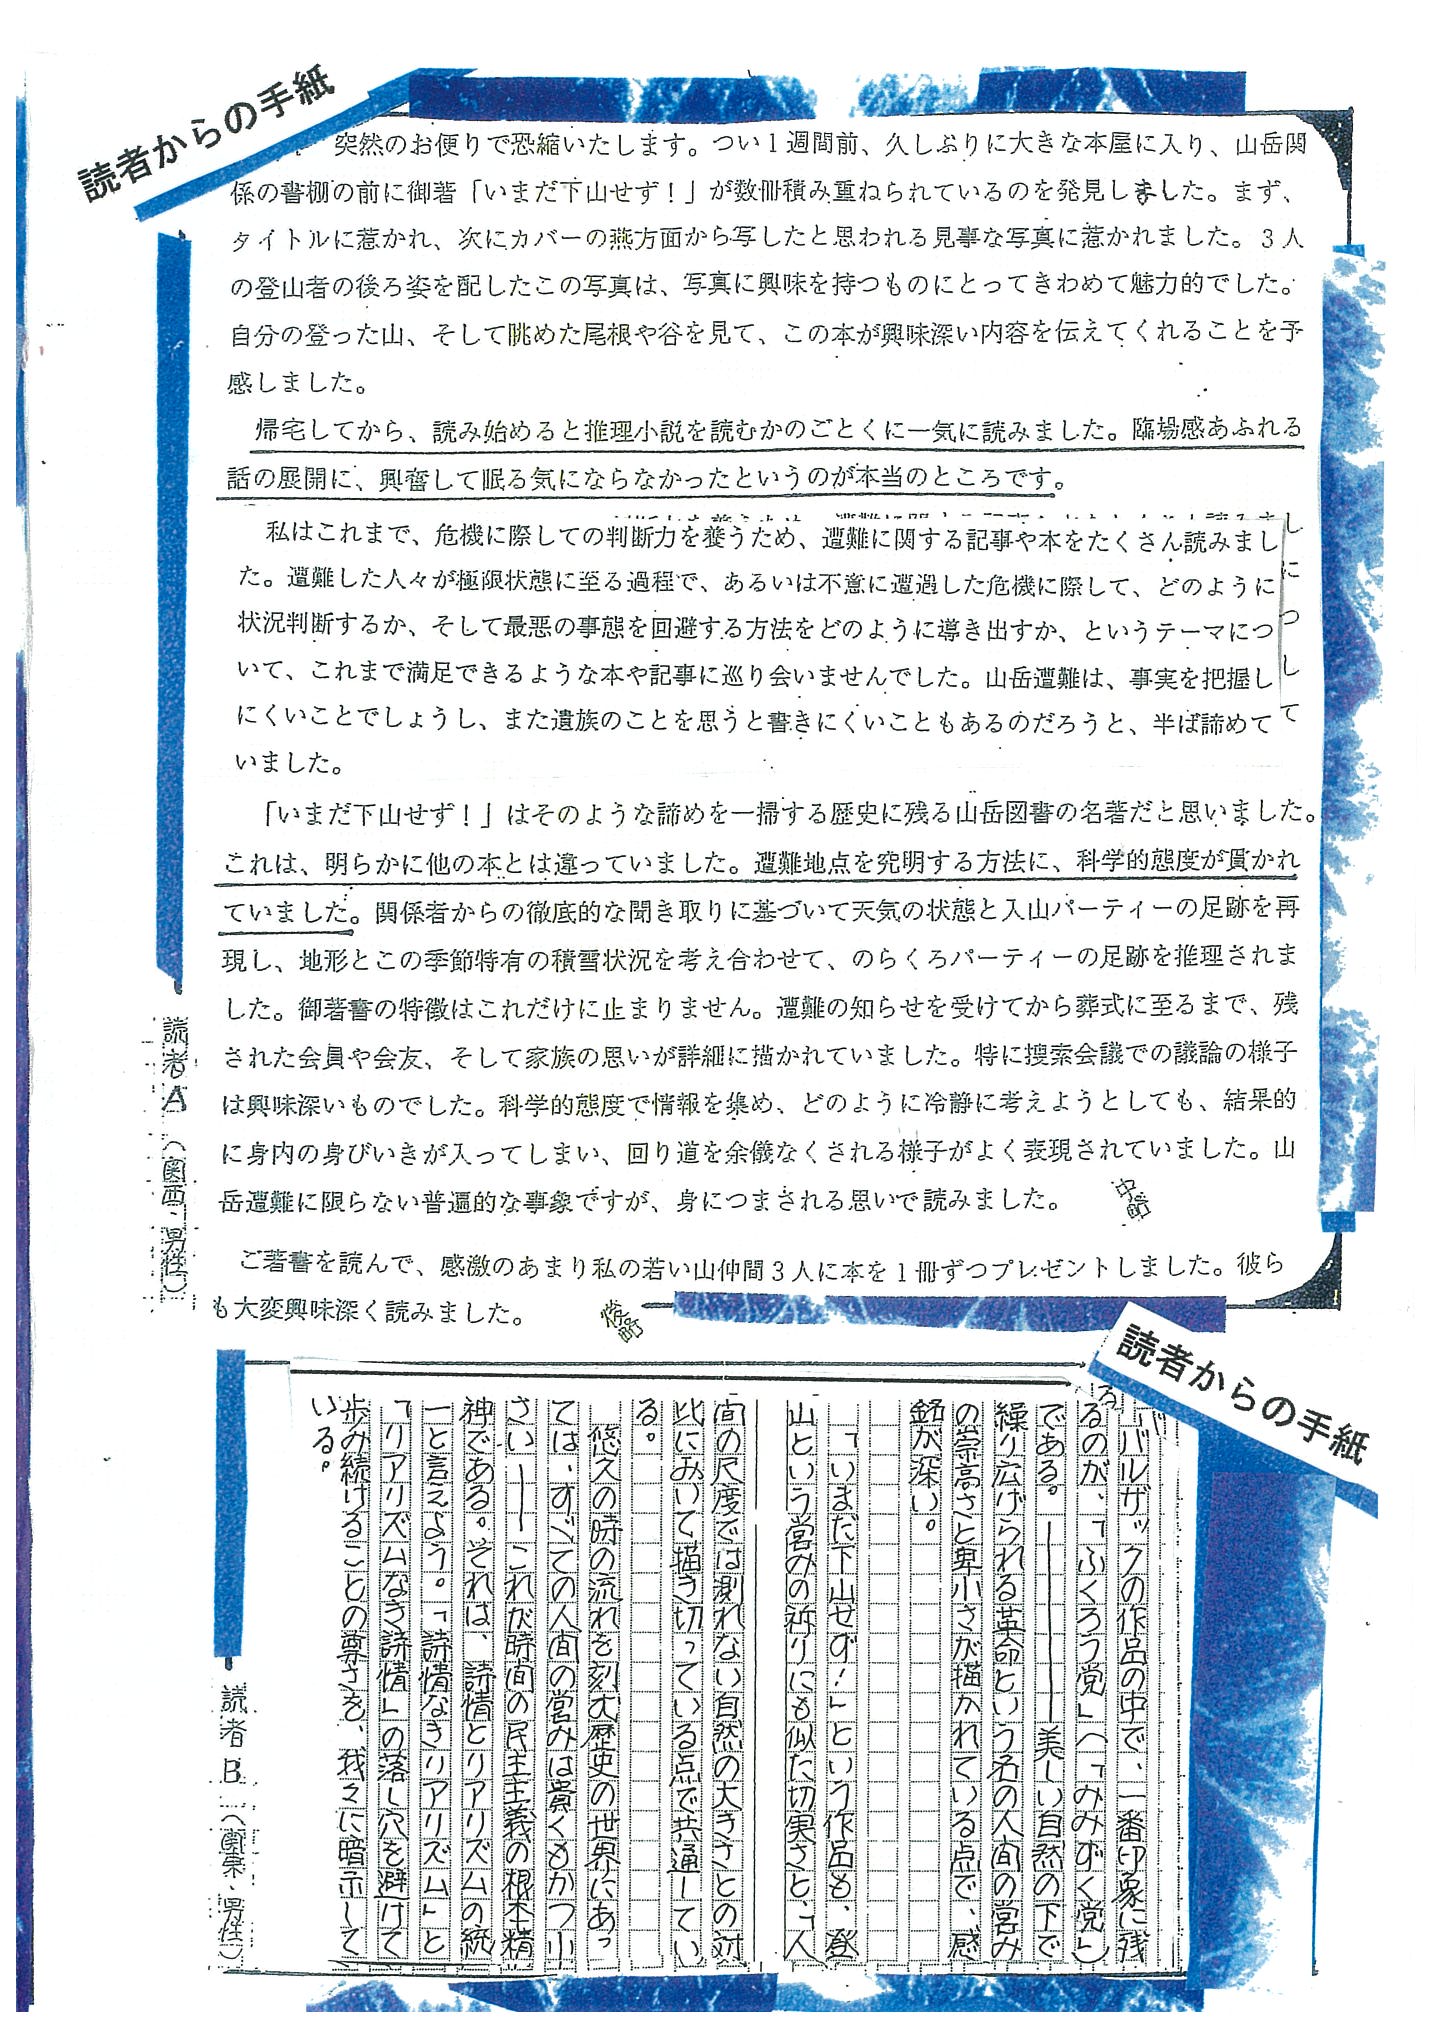 読者からの手紙
突然のお便りで恐縮いたします。つい1週間前、久しぶりに大きな本屋に入り、山岳関
係の書棚の前に御著「いまだ下山せず！」が数冊積み重ねられているのを発見しました。まず、
タイトルに惹かれ、次にカバーの燕方面から写したと思われる見事な写真に惹かれました。3人
の登山者の後ろ姿を配したこの写真は、写真に興味を持つものにとってきわめて魅力的でした。
自分の登った山、そして眺めた尾根や谷を見て、この本が興味深い内容を伝えてくれることを予
感しました。
帰宅してから、読み始めると推理小説を読むかのごとくに一気に読みました。臨場感あふれる
話の展開に、興奮して眠る気にならなかったというのが本当のところです。
私はこれまで、危機に際しての判断力を養うため、遭難に関する記事や本をたくさん読みまし
た。遭難した人々が極限状態に至る過程で、あるいは不意に遭遇した危機に際して、どのように
状況判断するか、そして最悪の事態を回避する方法をどのように導き出すか、というテーマにつ
いて、これまで満足できるような本や記事に巡り会いませんでした。山岳遭難は、事実を把握し
にくいことでしょうし、また遺族のことを思うと書きにくいこともあるのだろうと、半ば諦めて
いました。
「いまだ下山せず！」はそのような諦めを一掃する歴史に残る山岳図書の名著だと思いました。
これは、明らかに他の本とは違っていました。遭難地点を究明する方法に、科学的態度が貫かれ
ていました。関係者からの徹底的な聞き取りに基づいて天気の状態と入山パーティーの足跡を再
現し、地形とこの季節特有の積雪状況を考え合わせて、のらくろパーティーの足跡を推理されま
した。御著書の特徴はこれだけに止まりません。遭難の知らせを受けてから葬式に至るまで、残
された会員や会友、そして家族の思いが詳細に描かれていました。特に捜索会議での議論の様子
は興味深いものでした。科学的態度で情報を集め、どのように冷静に考えようとしても、結果的
に身内の身びいきが入ってしまい、回り道を余儀なくされる様子がよく表現されていました。山
岳遭難に限らない普遍的な事象ですが、身につまされる思いで読みました。
中略
ご著書を読んで、感激のあまり私の若い山仲間3人に本を1冊ずつプレゼントしました。彼ら
も大変興味深く読みました。
後略
読者A（関西・男性）
読者からの手紙
バルザックの作品の中で、一番印象に残
るのが、「ふくろう党」（「みみずく党」）
である。――――美しい自然の下で
繰り広げられる革命という名の人間の営み
の崇高さと卑小さが描かれている点で、感
銘が深い。
「いまだ下山せず！」という作品も、登
山という営みの祈りにも似た切実さと、「人
間の尺度では測れない自然の大きさとの対
比において描き切っている点で共通してい
る。
悠久の時の流れを刻む歴史の世界にあっ
ては、すべての人間の営みは貴くもかつ小
さい――これが時間の民主主義の根本精
神である。それは、詩情とリアリズムの統
一と言えよう。「詩情なきリアリズム」と
「リアリズムなき詩情」の落し穴を避けて
歩み続けることの尊さを、我々に暗示して
いる。
読者B（関東・男性）